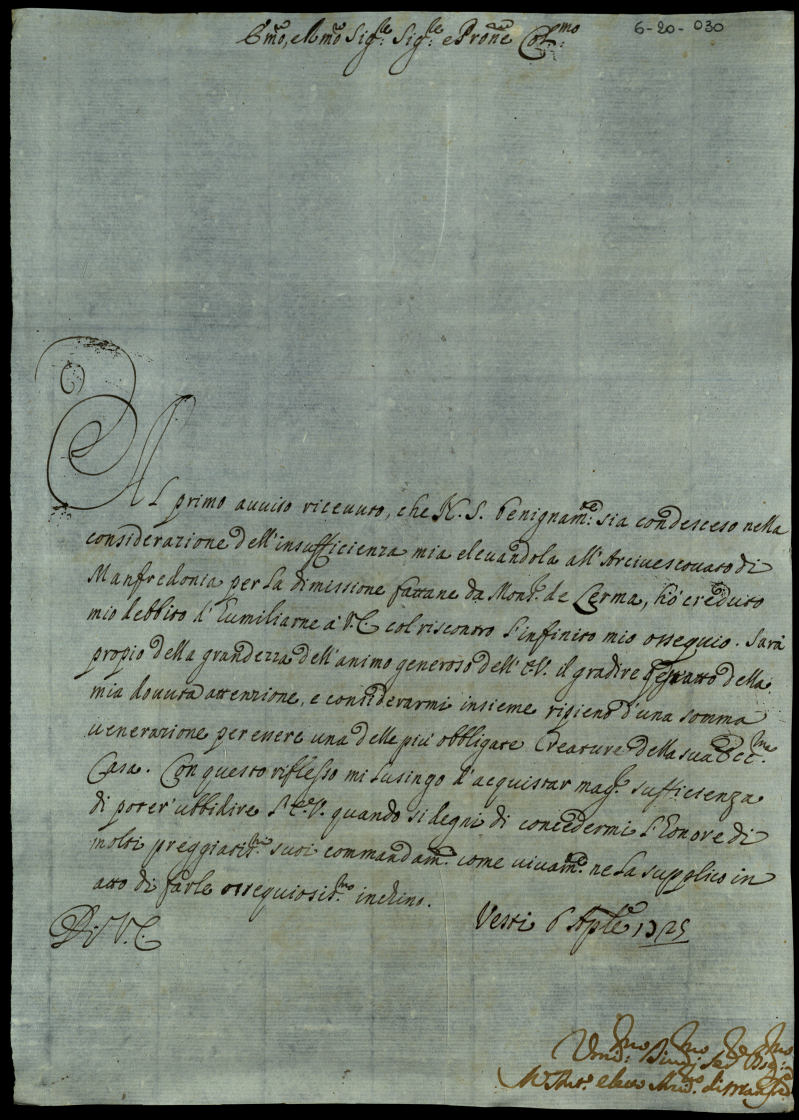 6-20-030
Emo, e Rmo Sig.re Sig.re e Prone Col.mo
Al primo avviso ricevuto, che N. S. benignam.te sia condesceso nella
considerazione dell'insufficienza mia elevandola all'Arcivescovato di
Manfredonia per la dimissione fattane da Mons.r de Lerma, hò creduto
mio debbito d'Eumiliarne à V. E. col riscontro l'infinito mio ossequio. Sarà
propio della grandezza dell'animo generoso dell'E.V. il gradire quest'atto della
mia dovuta attenzione, e considerarmi insieme ripieno d'una somma
venerazione per essere una delle più obbligate Creature della sua Ecc.ma
Casa. Con questo riflesso mi lusingo d'acquistar mag.r sufficienza
di poter'ubbidire l'E.V. quando si degni di concedermi l'Eonore di
molti preggiatis.mi suoi commandam.ti come vivam.te ne la supplico in
atto di farle ossequiosis.mo inchino.
Di V. E.
Vesti 6 Aple 1725